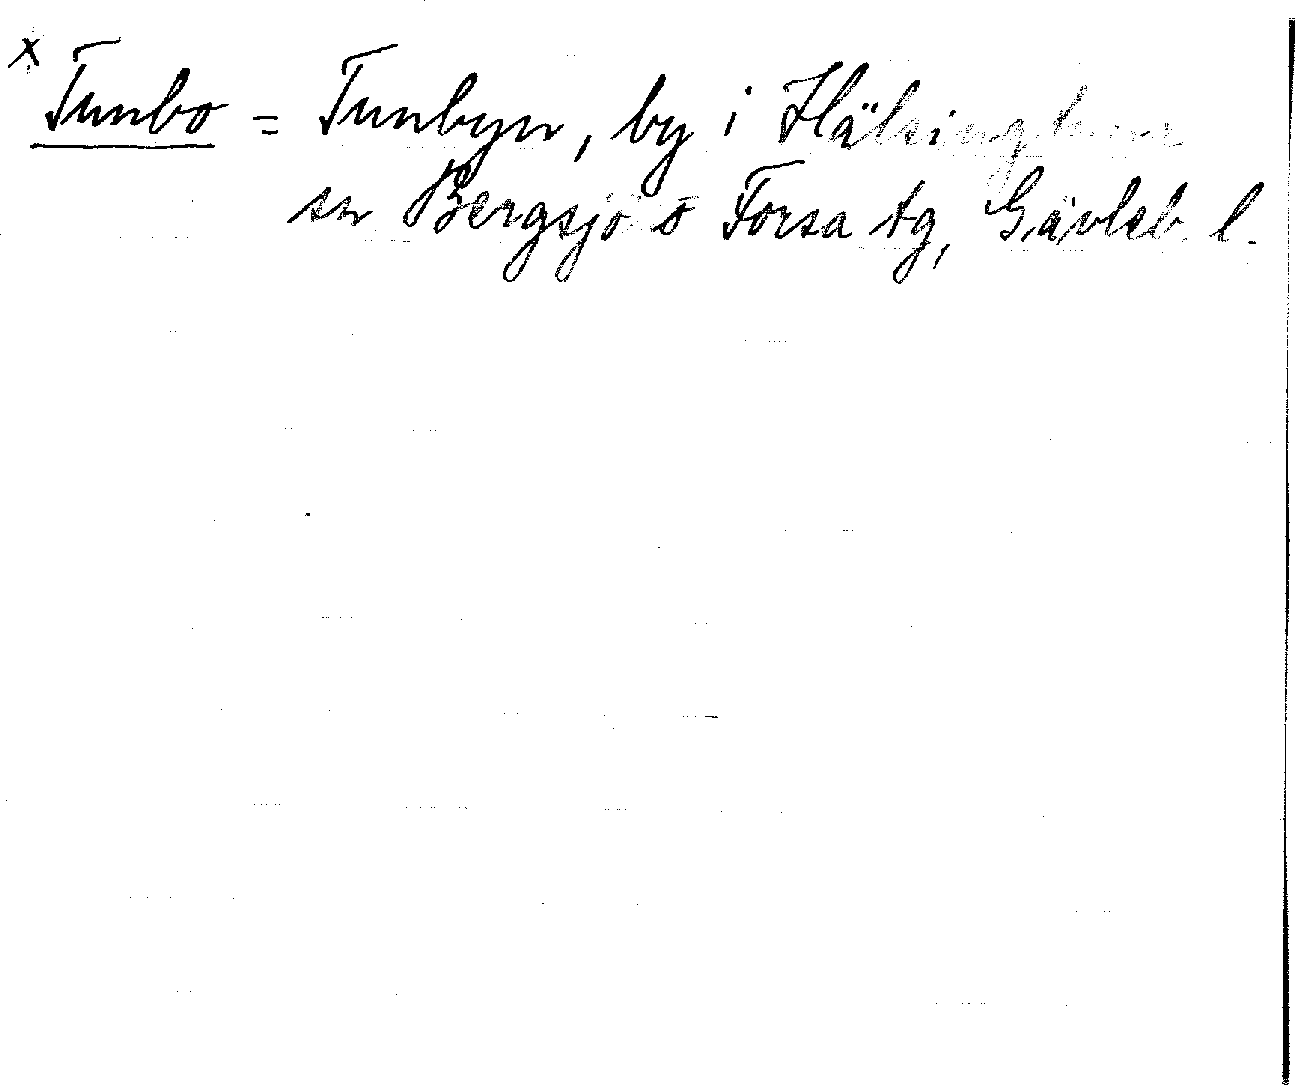 x Tunbo = Tunbyn, by i Hälsingtuna
sn Bergsjö o Forsa tg, Gävleb. l.